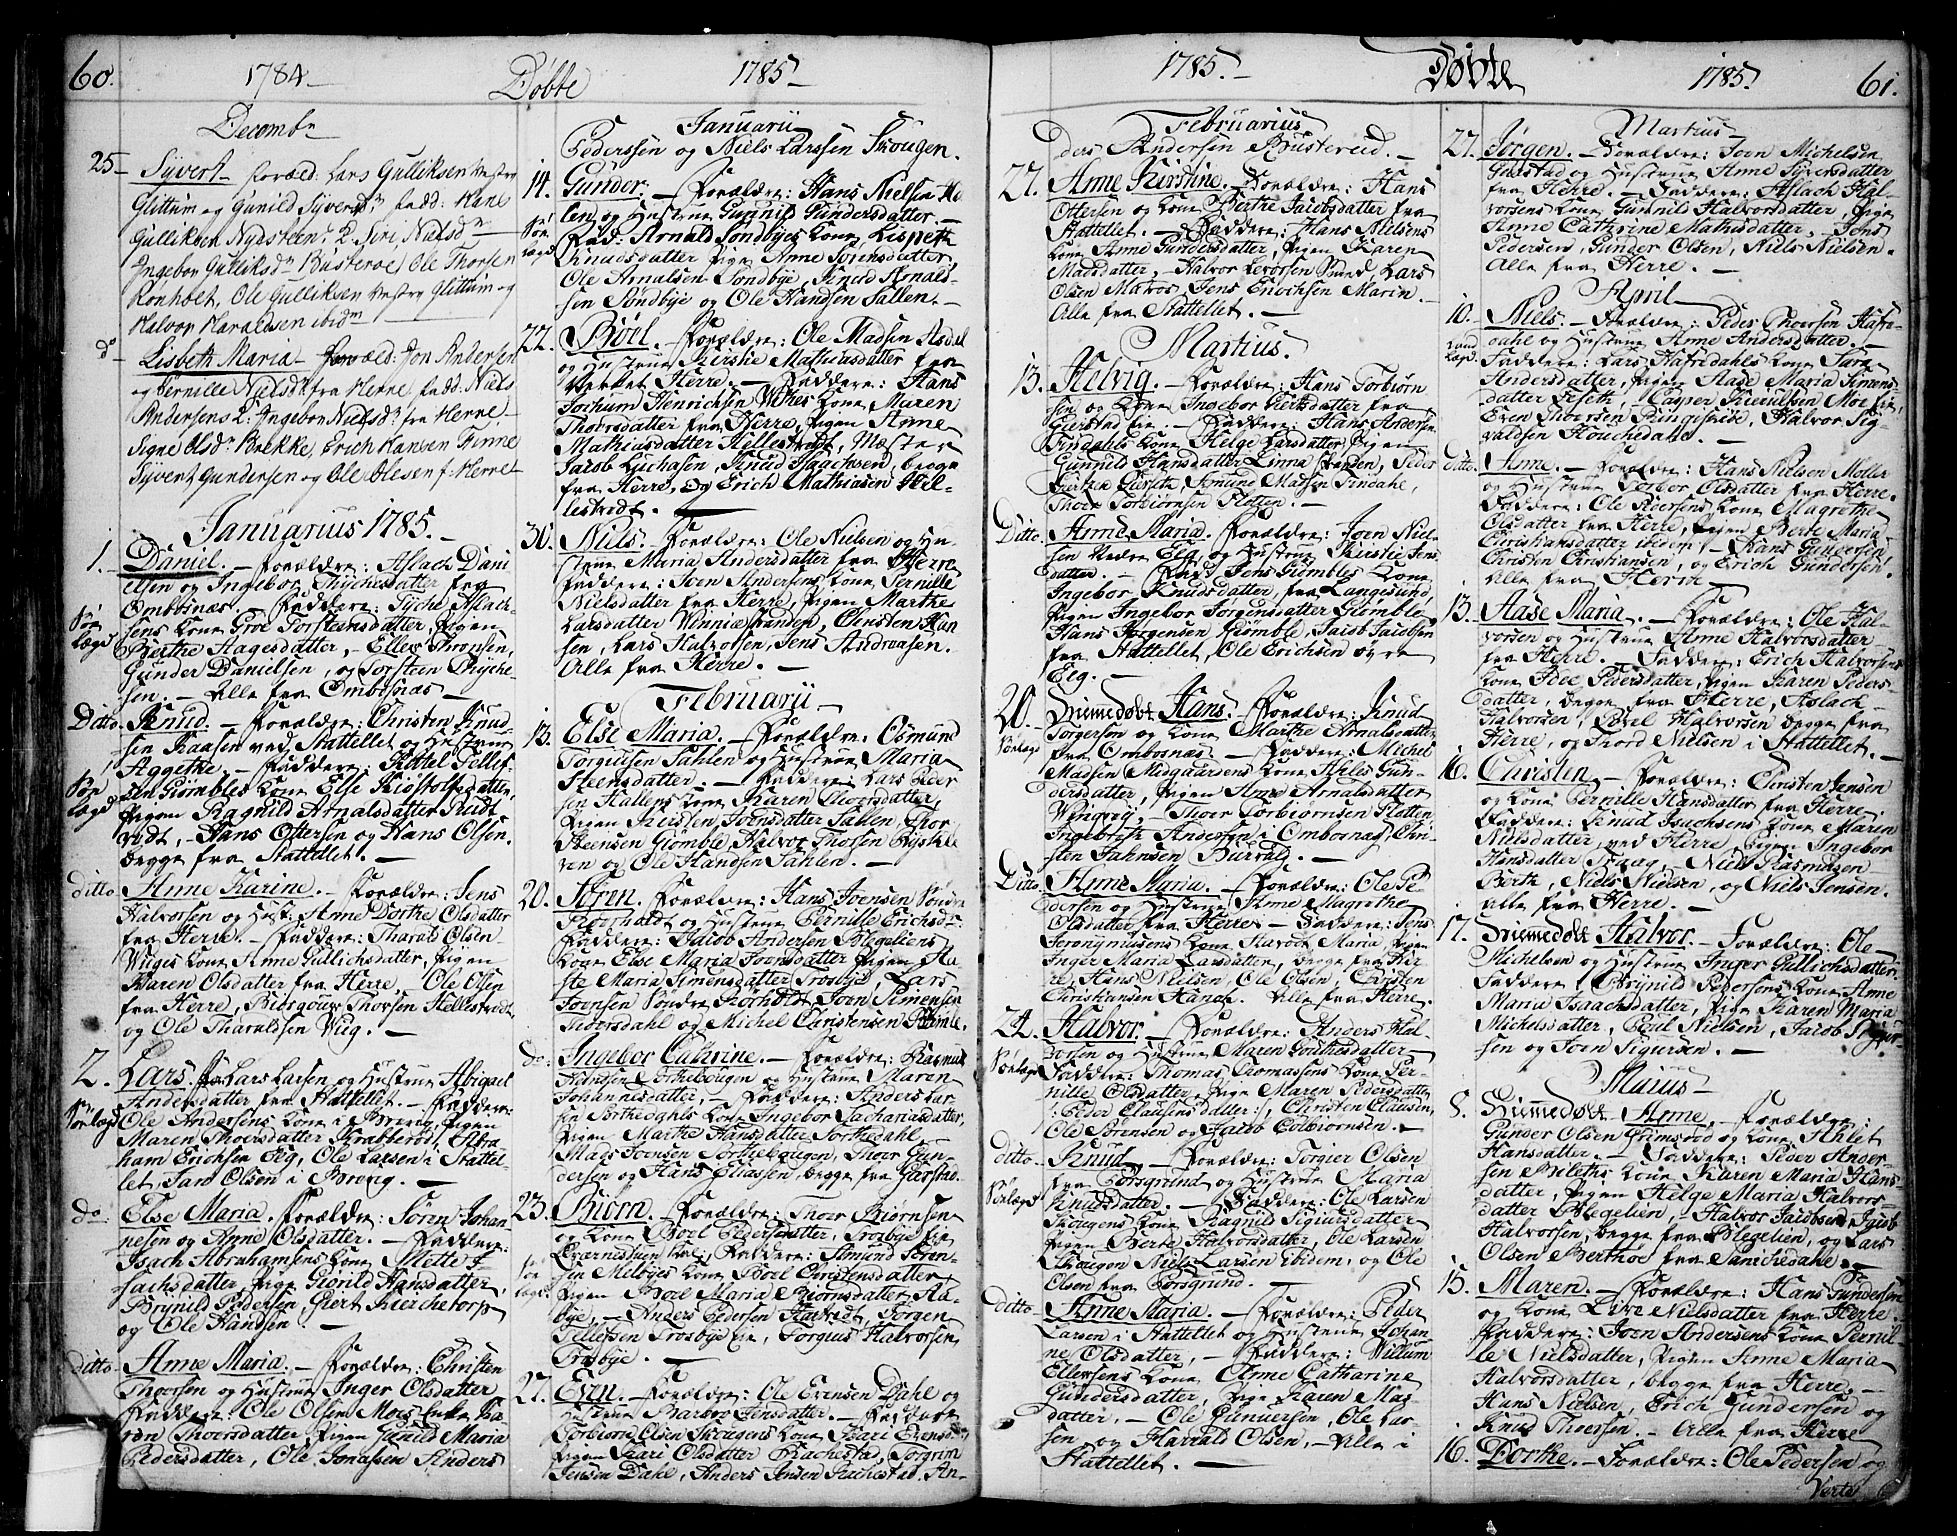 60. 1784 Døbte 1785
Decembr
25 Syvert foræld: Lars Gulliksen Vestry
Glittum og Gunild Syversdr fadd: Hans
Gulliksen Nydsteens K. Siri Nielsdr
Ingebor Gulliksdr Busteroe, Ole Thorsen
Rønholt, Ole Gulliksen Vestry Glittum og
Halvor Haraldsen ibidm
do Lisbeth Maria foræld: Jon Andersen
og Pernille Nielsdr fra Herre fadd: Niels
Andersens K: Ingebor Nielsdr fra Herre
Signe Olsdr Brekke, Erich Hansen Finne
Syvert Gundersen og Ole Olesen f: Herre
Januarius 1785.
1. Daniel. Forældre: Aslach Dani
elsen og Ingebor Thychesdatter fra
Ombornæs. Faddere: Tyche Aslach-
Søn sens Kone Groe Torsteensdatter, Pigen
lægd Berthe Aagesdatter, Ellev Thronsen,
Gunder Danielsen, og Torsteen Thyche
sen. Alle fra Ombornæs
Ditto Knud. Forældre: Christen Knud
sen Kaasen ved Stattellet og Hustrue
Aggethe. Faddere: Kittel Tellef-
Søn sen Giømbles Kone Else Kiøstolfsdatter,
lægd Pigen Ragnild Arnalsdatter Rødt
vedt, Hans Ottersen og Hans Olsen
begge fra Stattellet.
ditto Anne Karine. Forældre: Jens
Halvorsen og Hust: Anne Dorthe Olsdatter
fra Herre. Faddere: Tharald Olsen
Wiiges Kone Anne Gullichsdatter, Pigen
Karen Olsdatter fra Herre, Ole Olsen
fra Herre, Thorsen Hellestvedt,
og Ole Tharaldsen Wiig.
2. Lars. Lars Larsen og Hustrue Abigael
Andersdatter fra Stattellet. Faddere:
Sønlægd Ole Andersens Kone i Brevig, Pigen
Maren Thorsdatter Krabberød, Abra
ham Erichsen Eeg, Ole Larsen i Stattel-
let, Jan Olsen i Brevig.
do Else Maria. Forældre: Søren Johan
nesen og Anne Olsdatter. Faddere:
Isach Abrahamsens Kone Mette I-
sachsdatter, Pige Gunild Hansdatter,
Brynild Pedersen, Giert Kierchetorp
og Ole Hansen
ditto Anne Maria. Forældre: Christen
Thorsen og Hustrue Inger Olsdatter
Faddere: Ole Olsen Moes Enke Ka
ren Thorsdatter Pigen Gunild Maria
Pedersdatter, Ole Jonassen Anders
Januarii
Pederssen og Niels Larssen Skougen.
14. Gunder. Forældre: Hans Nielsen
len og Hustrue Gunnild Gundersdatter.
Søn Fad: Arnald Sondbyes Kone Lispeth
lægd Knudsdatter Pige Anne Sørensdatter,
Ole Arnalsen Sondbye, Knud Arnals-
sen Sondbye og Ole Handsen Sallen.
22. Bøel. Forældre: Ole Madsen Asdal
og Hustrue Kirstie Mathiasdatter fra
Verket Herre. Faddere: Hans
Jochum Henrichsen Vibes Kone Maren
Thorsdatter fra Herre, Pigen Anne
Mathiasdatter Hellestvedt, Mester
Jacob Luchasen, Knud Isachsen, begge
fra Herre, og Erich Mathiasen Hel-
lestvedt.
30. Niels. Forældre: Ole Nielsen og Hu-
strue Maria Andersdatter fra Herre
Faddere: Joen Andersens Kone Pernille
Nielsdatter fra Herre, Pigen Marthe
Larsdatter Vinniestranden, Christen Han
sen, Lars Halvorsen, Jens Andreasen.
Alle fra Herre.
Februarii
13. Else Maria. Forældre: Osmund
Torgiussen Sahlen og Hustrue Maria
Steensdatter. Faddere: Lars Peder
sen Hallens Kone Karen Thorsdatter,
Pigen Kirsten Joensdatter Sahlen, Thor
Steensen Giømble, Halvor Thorsen Bystøl
ven og Ole Handsen Sahlen.
20. Søren. Forældre: Hans Joensen Søndre
Roerholdt og Hustrue Pernille Erichsd:
Faddere: Jacob Andersen Blegeliens
Kone Else Maria Joensdatter Pigen Aa-
ste Maria Simensdatter Trosbye, Lars
Joensen Søndre Rorholdt, Joen Simensen
Thorsdahl og Michel Christensen
do Ingebor Cathrine. Forældre: Rasmus
Handsen Torthebougen og Hustrue Maren
Johannisdatter. Faddere: Anders Lar
sen Torthedahls Kone Ingebor Zachariasdatter,
Pigen Marthe Hansdatter Torthedahl,
Mads Joensen Torthebougen, Thor Gun
dersen og Hans Eliassen begge fra Gierstad.
23. Biørn. Forældre: Thor Biørnsen
og Kone Boel Pedersdatter, Trosbye
Faddere: Simund Søren-
Søn sen Melbyes Kone Boel Christensdatter
lægd Pigen Boel Maria Biørnsdatter, Aa-
bye, Anders Pedersen Hasvedt, Jørgen
Tellefsen Trosbye Eie, Torgius Halvorsen
Trosbye.
27. Even. Forældre: Ole Evensen Dahl og
Hustrue Barbro Jensdatter. Faddere
Torbiørn Olsen Skougens Kone Kari Evensd:
Pigen Kari Olsdatter Bachestad, Torgrim
Jensen Dahl, Anders Jensen Bachestad, An-
1785. Døbte 1785. 61.
Februarius
ders Andersen Brustereid.
27. Anne Kirstine. Forældre: Hans
Ottersen og Kone Berthe Jacobsdatter fra
Stattellet. Faddere: Hans Nielsens
Kone Anne Gundersdatter, Pigen Karen
Madsdatter, Halvor Levorsen Lars
Olsen Marer, Jens Erichsen Marin.
Alle fra Stattellet.
Martius.
13. Helvig. Forældre: Hans Torbiørn
sen og Kone Ingebor Giertsdatter fra
Gierstad Eie. Faddere: Hans Andersen
Findahls Kone Helge Larsdatter, Pigen
Gunnild Hansdatter Linna Stranden, Peder
Giertsen Giersteh, Amund Madsen Findahl,
Thor Torbiørnsen Platten.
Ditto. Anne Maria. Forældre: Joen Niel-
sen Nedre Eeg og Hustrue Kirstie Jens
datter. Fad: Jens Giømbles Kone
Ingebor Knudsdatter, fra Langesund,
Pigen Ingebor Jørgensdatter Giømble,
Hans Jørgensen Giømble, Jacob Jacobsen
fra Stattellet, Ole Erichsen øvre
Eeg.
20. Hiemedøbt Hans. Forældre: Knud
Sønlægd Jørgensen og Kone Marthe Arnalsdatter
fra Ombornæs. Faddere: Michel
Madsen Midgaarsens Kone Ahlet Gun-
dersdatter, Pigen Anne Arnalsdatter
Wingreig, Thor Torbiørnsen Platten,
Ingebrigt Andersen i Ombornæs, Chri-
sten Jahnsen Burvald.
Ditto. Anne Maria. Forældre: Ole Pe-
dersen og Hustrue Anne Magrethe
Olsdatter fra Herre. Faddere: Jens
Jeronymusens Kone Maria, Pigen
Inger Maria Larsdatter, begge fra Her-
re, Hans Nielsen, Ole Olsen, Christen
Christiansen Alle fra Herre.
24. Halvor. Forældre: Anders Hal-
vorsen og Hustrue Maren Gouthesdatter
Sønlægd Faddere: Thomas Thomassens Kone Per-
nille Olsdatter, Pige Maren Pedersdatter
/: Peder Clausens datter :/, Christen Clausen,
Ole Sørensen og Jacob Torbiørnsen.
ditto Knud. Forældre: Torgier Olsen
fra Porsgrund og Hustrue Maria
Sønlægd Knudsdatter. Faddere: Ole Larsen
Skougens Kone Ragnild Sigursdatter
Pigen Berte Halvorsdatter, Ole Larsen
Skougen Niels Larsen Ibidem, og Ole
Olsen fra Porsgrund.
ditto Anne Maria. Forældre: Peder
Larsen i Stattellet og Hustrue Johan-
ne Olsdatter, Faddere: Willum
Ellevsens Kone Anne Catharine
Gundersdatter, Pige Karen Mas
datter. Ole Gundersen, Ole Lar-
sen og Harrald Olsen, Alle i
Stattellet.
Martius
27. Jørgen. Forældre: Joen Michelsen
Gulstad og Hustrue Anne Syversdatter
fra Herre. Faddere: Aslach Hal-
vorsens Kone Gunnild Halvorsdatter, Pige
Anne Cathrine Mathisdatter, Jens
Pedersen, Gunder Olsen, Niels Nielsen.
Alle fra Herre.
April
10. Niels. Forældre: Peder Thorsen Hafre
Sand dahl og Hustrue Anne Andersdatter.
lægd. Faddere: Lars Hafredahls Kone Sara
Andersdatter, Pigen Aase Maria Simens
datter Fiseth, Casper Knudsen Moe Eie,
Even Thorsen Rungisrøe, Halvor Sig-
valdsen Houchedahl.
ditto. Anne. Forældre: Hans Nielsen Møller
og Hustrue Torbor Olsdatter fra Herre.
Faddere: Ole Pedersens Kone Magrethe
Olsdatter fra Herre, Pigen Berte Maria
Christiansdatter ibidem, Hans Gundersen
Christen Christiansen, og Erich Gundersen.
Alle fra Herre
13. Aase Maria. Forældre: Ole Hal-
vorsen og Hustrue Anne Halvorsdatter
fra Herre. Faddere: Erich Halvorsens
Kone Pedersdatter, Pigen Karen Peders-
datter, begge fra Herre, Aslach
Halvorsen, Povel Halvorsen begge fra
Herre, og Trord Nielsen i Stattellet.
16. Christen. Forældre: Christen Jensen
og Kone Pernille Hansdatter fra Herre.
Faddere: Knud Isachsens Kone Maren
Nielsdatter, ved Herre, Pigen Ingebor
Hansdatter Niels Rasmusen
Berth, Niels Nielsen, og Niels Jensen.
Alle fra Herre.
17. Hiemedøbt Halvor. Forældre: Ole
Michelsen og Hustrue Inger Gullichsdatter.
Faddere, Brynild Pedersens Kone Anne
Maria Isaachsdatter, Pige Karen Maria
Michelsdatter, Poul Nielsen, Jacob
sen og Joen Sigursen.
Maius
8. Hiemedøbt Anne. Forældre:
Gunder Olsen Grimsrød og Kone Ahlet
Hansdatter. Faddere: Peder Ander-
sen Meleths Kone Karen Maria Hans-
datter, Pigen Helge Maria Halvors-
datter Blegelien, Halvor Jacobsen, Jacob
Halvorsen, begge fra Blegelien, og Lars
Olsen Berthoe fra Sanchedahl.
15. Maren. Forældre: Hans Gundersen
og Kone Live Nielsdatter fra Herre.
Faddere: Joen Andersens Kone Pernil-
le Nielsdatter, Pigen Anne Maria
Halvorsdatter, begge fra Herre,
Hans Nielsen, Erich Gundersen og
Knud Thorsen. Alle fra Herre
16. Dorthe. Forældre: Ole Pedersen og
Verte